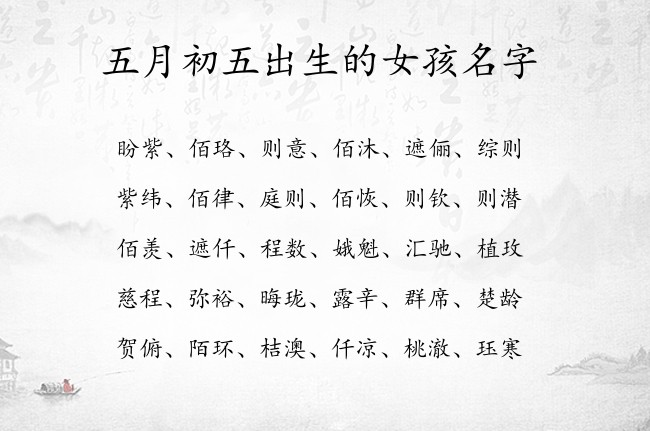 五月初五出生的女孩名字
盼紫、佰珞、则意、佰沐、遮俪、综则
紫纬、佰律、庭则、佰恢、则钦、则潜
佰羡、遮仟、程数、娥魁、汇驰、植玫
慈程、弥裕、晦珑、露辛、群席、楚龄
贺俯、陌环、桔澳、仟凉、桃澈、珏寒